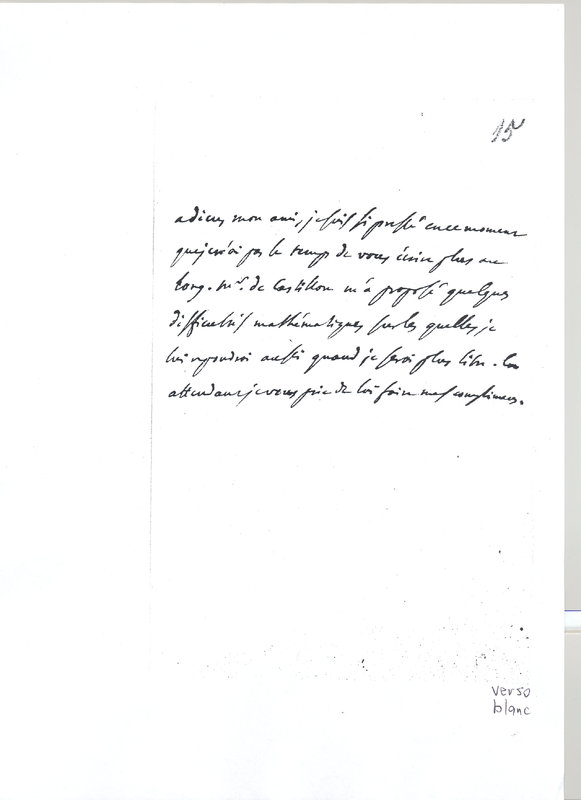 15
adieu mon ami, je suis si pressé en ce moment
que je n'ai pas le temps de vous écrire plus au
long. Mr. de Castillon m'a proposé quelques
difficultés mathématiques sur les quelles je
lui repondrai aussi quand je serai plus libre. En
attendant je vous prie de lui faire mes complimens.
verso
blanc